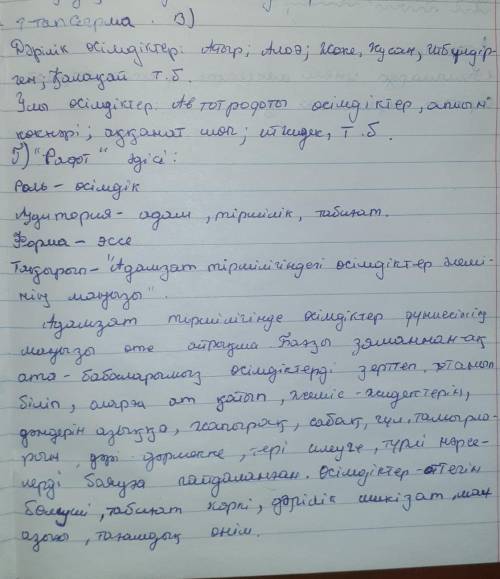 тапсырма. 3)
Дәрілік өсімдіктер: Атыр; Алоэ; Жөке, Жусан, Итбүлдір-
ген; Қалақай т.б.
Улы өсімдіктер: Автотродоты өсімдіктер, апиын
көкнәрі; аққанат шөп; итжидек, т.б.
5) "Рафт" әдісі:
Роль - өсімдік
Аудитория - адам, тіршілік, табиғат.
Форма - эссе
Тақырып - "Адамзат тіршілігіндегі өсімдіктер әлемі-
нің маңызы".
Адамзат тіршілігінде өсімдіктер дүниесінің
маңызы өте айрықша. Баяғы заманнан-ақ
ата-бабаларымыз өсімдіктерді зерттеп, танып
біліп, оларға ат қойып, жеміс-жидектерін,
дәндерін азыққа, жапырақ, сабақ, гүл, тамырла-
рын дәрі-дәрмекке, тері илеуге, түрлі нәрсе-
лерді бояуға пайдаланған. Өсімдіктер - оттегін
бөлуші, табиғат көркі, дәрілік шикізат, мал
азығы, тағамдық өнім.